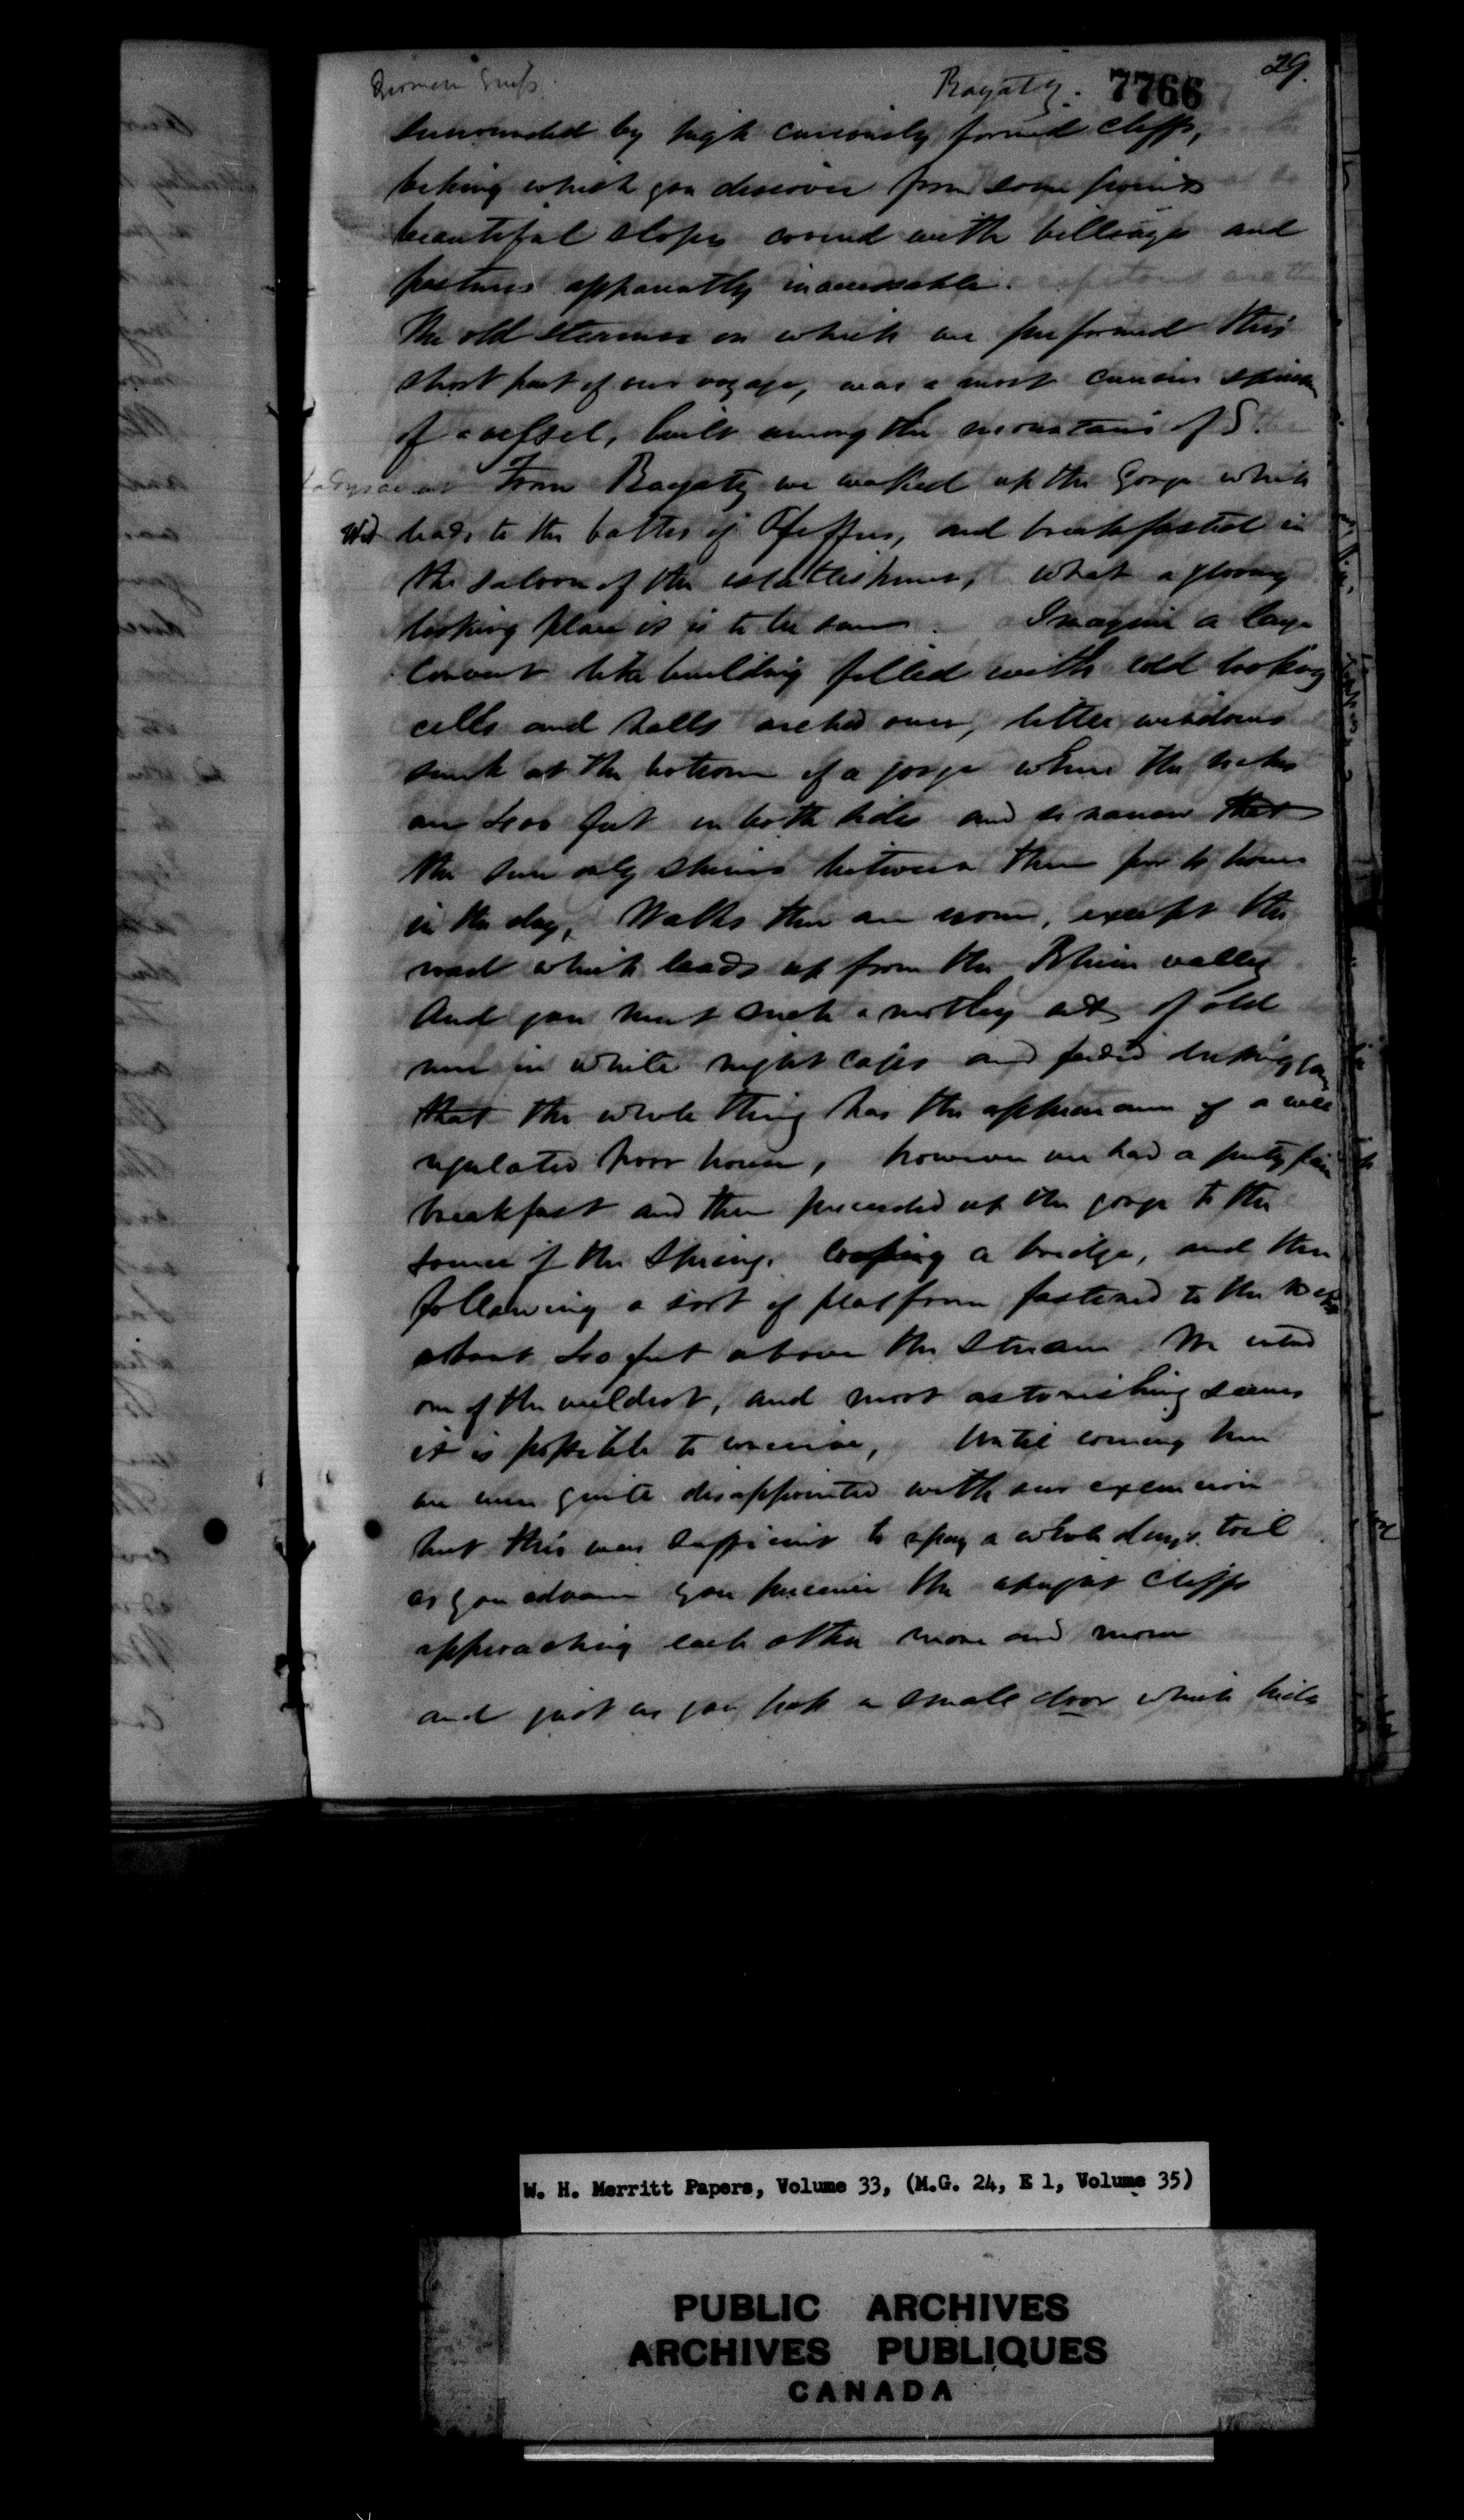 Ragatz. 7766 29.
surrounded by high curiously formed cliffs,
behing which you discover from some points
beautiful slopes covered with villiages and
pastures apparently inaccessable.
The old steamer on which we performed this
short part of our voyage, was a most curious
of a vessel, built among the mountains of S.
From Ragatz we walked up the Gorge which
Wed leads to the bathes of Pfeffers, and breakfasted in
the saloon of the establishment, what a gloomy
looking place it is to be sure. Imagine a large
convent like building filled with cold looking
cells and halls arched over, little windows
sunk at the bottom of a gorge where the rocks
are 400 feet on both sides and so narrow that
the sun only shines between them for 4 hours
in the day, Walks there are none, except the
road which leads up from the Rhine valley
And you meet such a motley set of old
men in white night caps and faded dressing
that the whole thing has the appearance of a well
regulated poor house, however we had a pretty fair
breakfast and then proceeded up the gorge to the
source of the Spring. Crossing a bridge, and then
following a sort of platform fastened to the rocks
about 40 feet above the Stream We entered
one of the wildest, and most astonishing scenes
it is possible to conceive, Until coming here
we were quite disappointed with our excursion
but this was sufficient to repay a whole days. toil
as you advance you perceive the upright cliffs
approaching each other more and more
and just as you pass a small door which hides
W. H. Merritt Papers, Volume 33, (M.G. 24, E 1, Volume 35)
PUBLIC ARCHIVES
ARCHIVES PUBLIQUES
CANADA